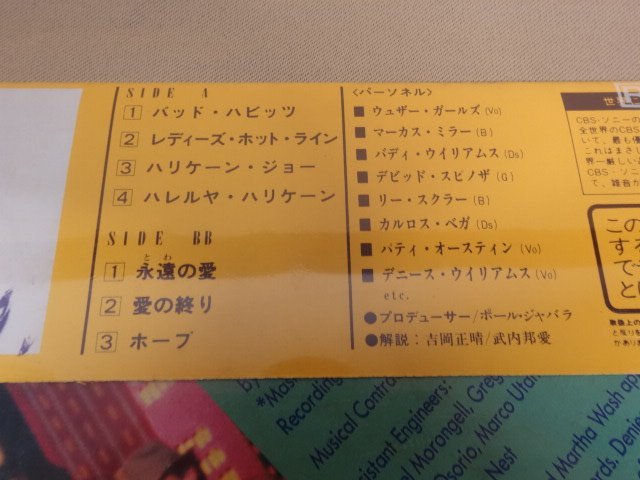 SIDE A
1 バッド・ハビッツ
2 レディーズ・ホット・ライン
3 ハリケーン・ジョー
4 ハレルヤ・ハリケーン
SIDE BB
とわ
1 永遠の愛
2 愛の終り
3 ホープ
〈パーソネル〉
■ウェザー・ガールズ(Vo)
■マーカス・ミラー(B)
■バディ・ウイリアムス(Ds)
■デビッド・スピノザ(G)
■リー・スクラー(B)
■カルロス・ベガ(Ds)
■パティ・オースティン(Vo)
■デニース・ウイリアムス(Vo)
etc.
●プロデューサー/ポール・ジャバラ
●解説:吉岡正晴/武内邦愛
CBS・ソニーの
全世界のCBS
いて、最も優
これはまさし
界一厳しい
CBS・ソニー
て、雑音が
この
する
で
と
by
*Mas
Recording
Musical Contra
Assistant Engineers:
el Morongell, Greg
Osorio, Marco Utan
Nest
d Martha Wash ap
ards, Denie